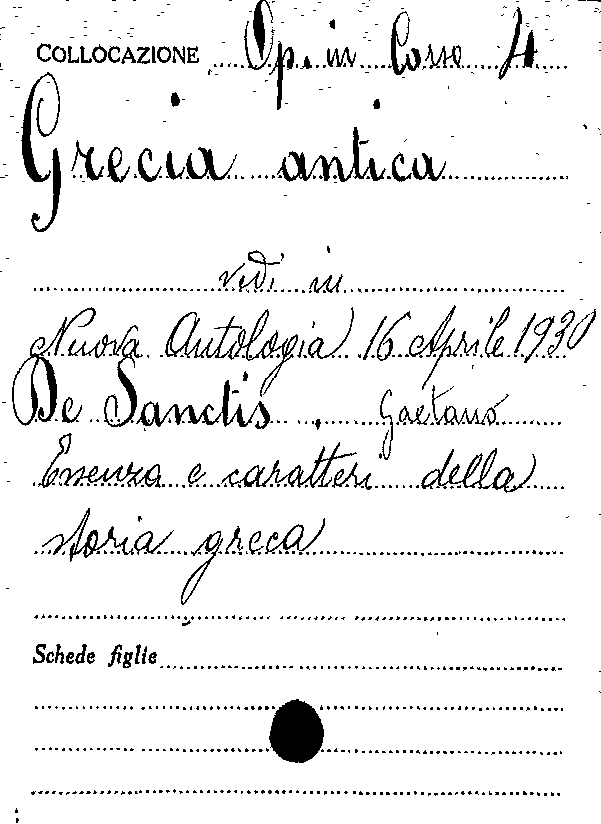 COLLOCAZIONE Op. in Corso 4
Grecia antica
vedi in
Nuova Antologia 16 Aprile 1930
De Sanctis. Gaetano
Essenza e caratteri della
storia greca
Schede figlie